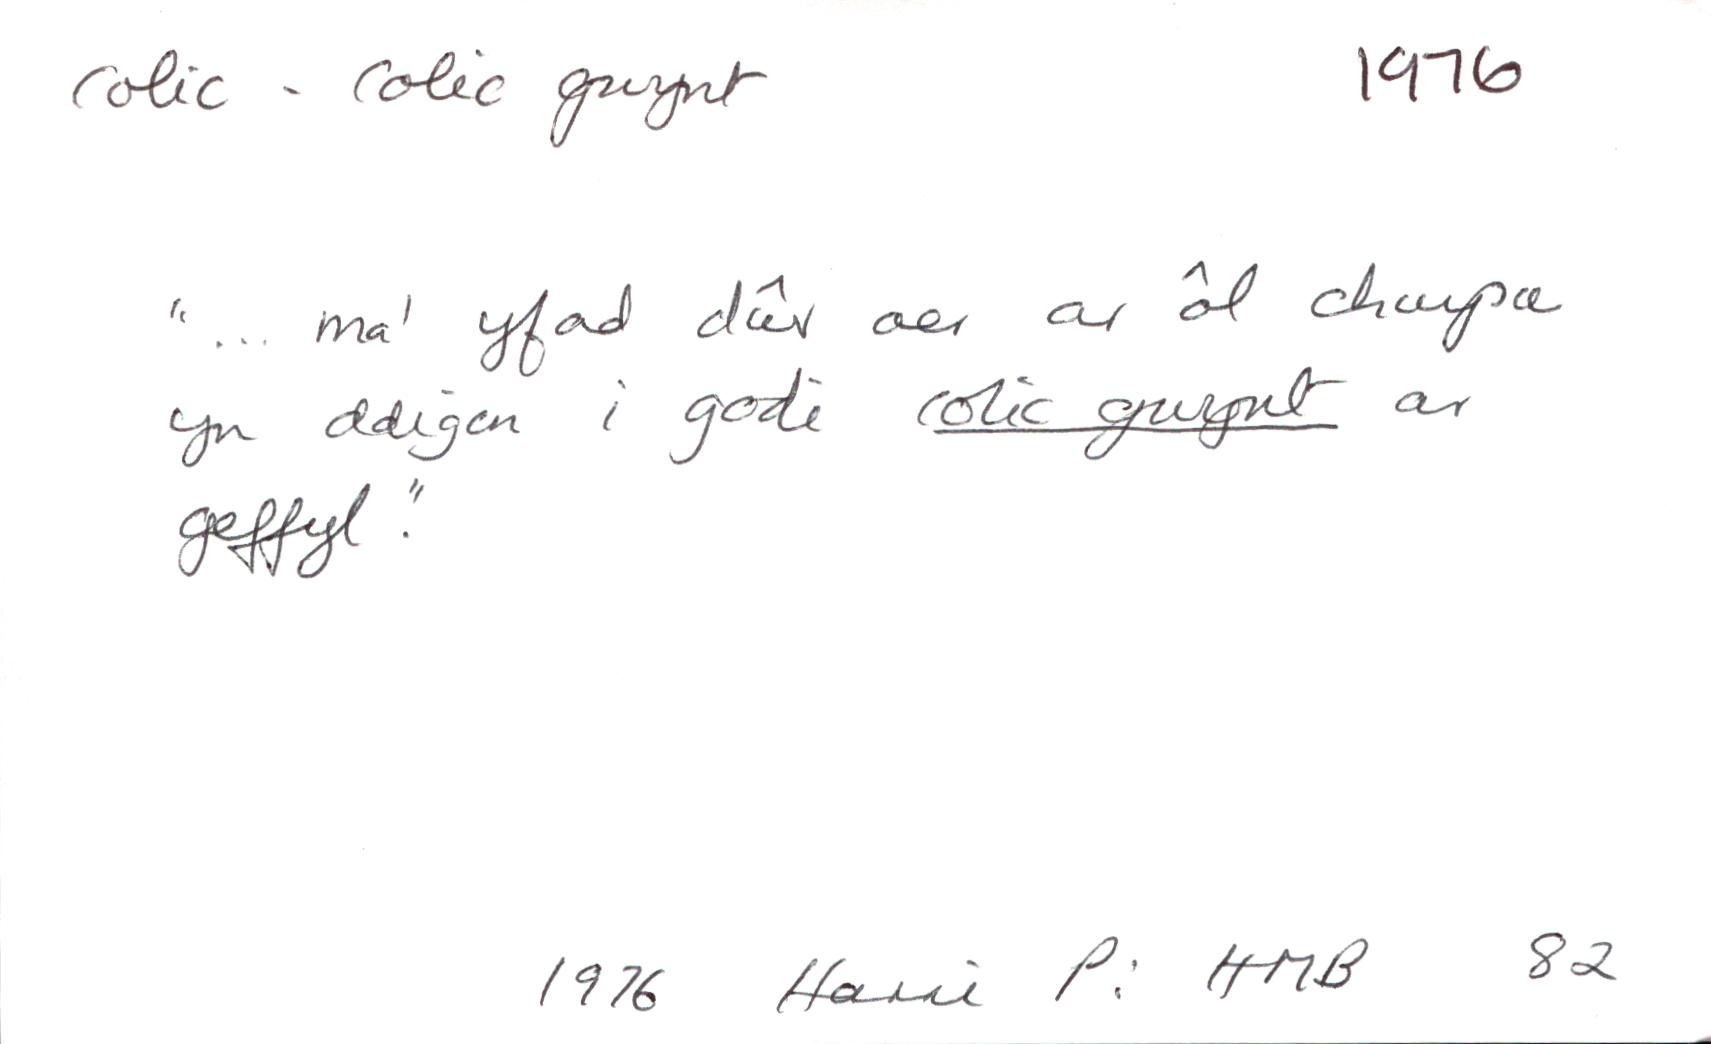 colic - colic gwynt 1976
"... ma' yfad dŵr oer ar ôl chwysu
yn ddigon i godi colic gwynt ar
geffyl."
1976 Harri P: HMB 82